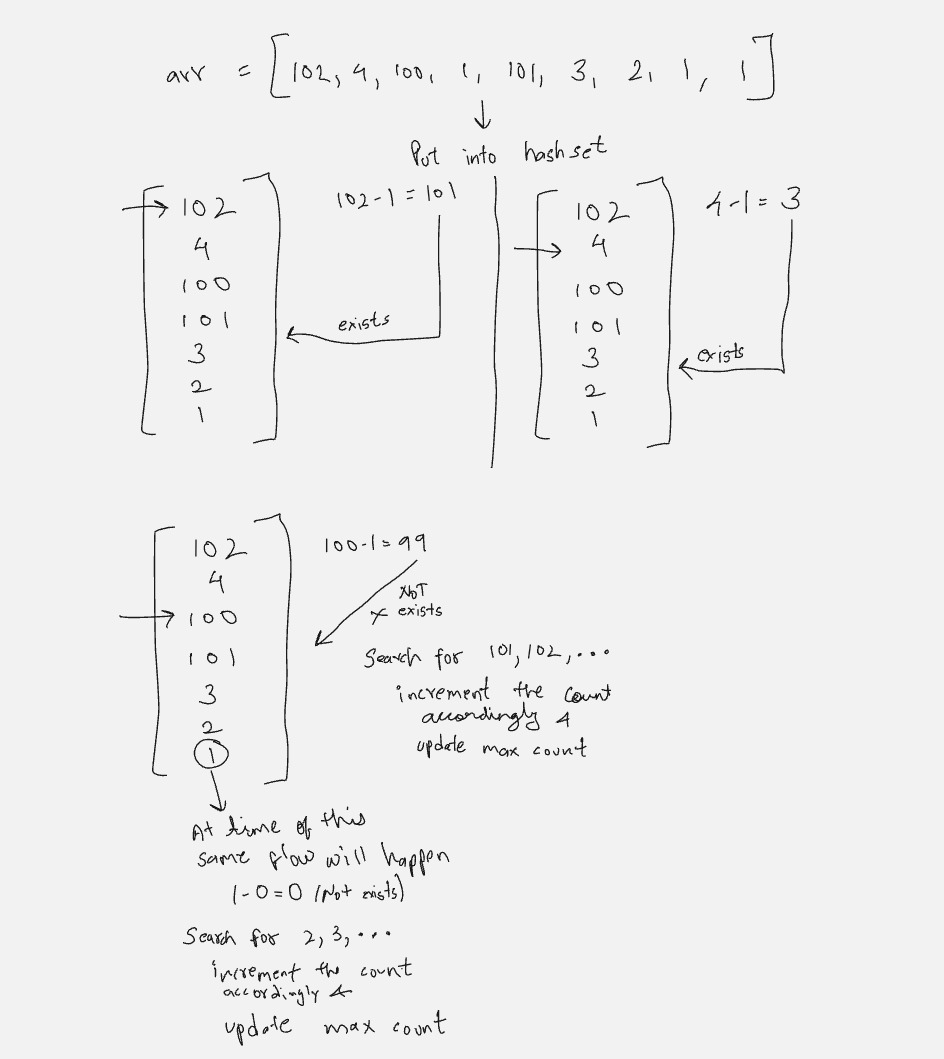 arr = [102, 4, 100, 1, 101, 3, 2, 1, 1]
Put into hashset
102
4
100
101
3
2
1
102-1=101
exists
102
4
100
101
3
2
1
4-1=3
exists
102
4
100
101
3
2
1
100-1=99
NOT
x exists
Search for 101, 102, ...
increment the count
accordingly &
update max count
At time of this
same flow will happen
1-0=0 (Not exists)
Search for 2, 3, ...
increment the count
accordingly &
update max count